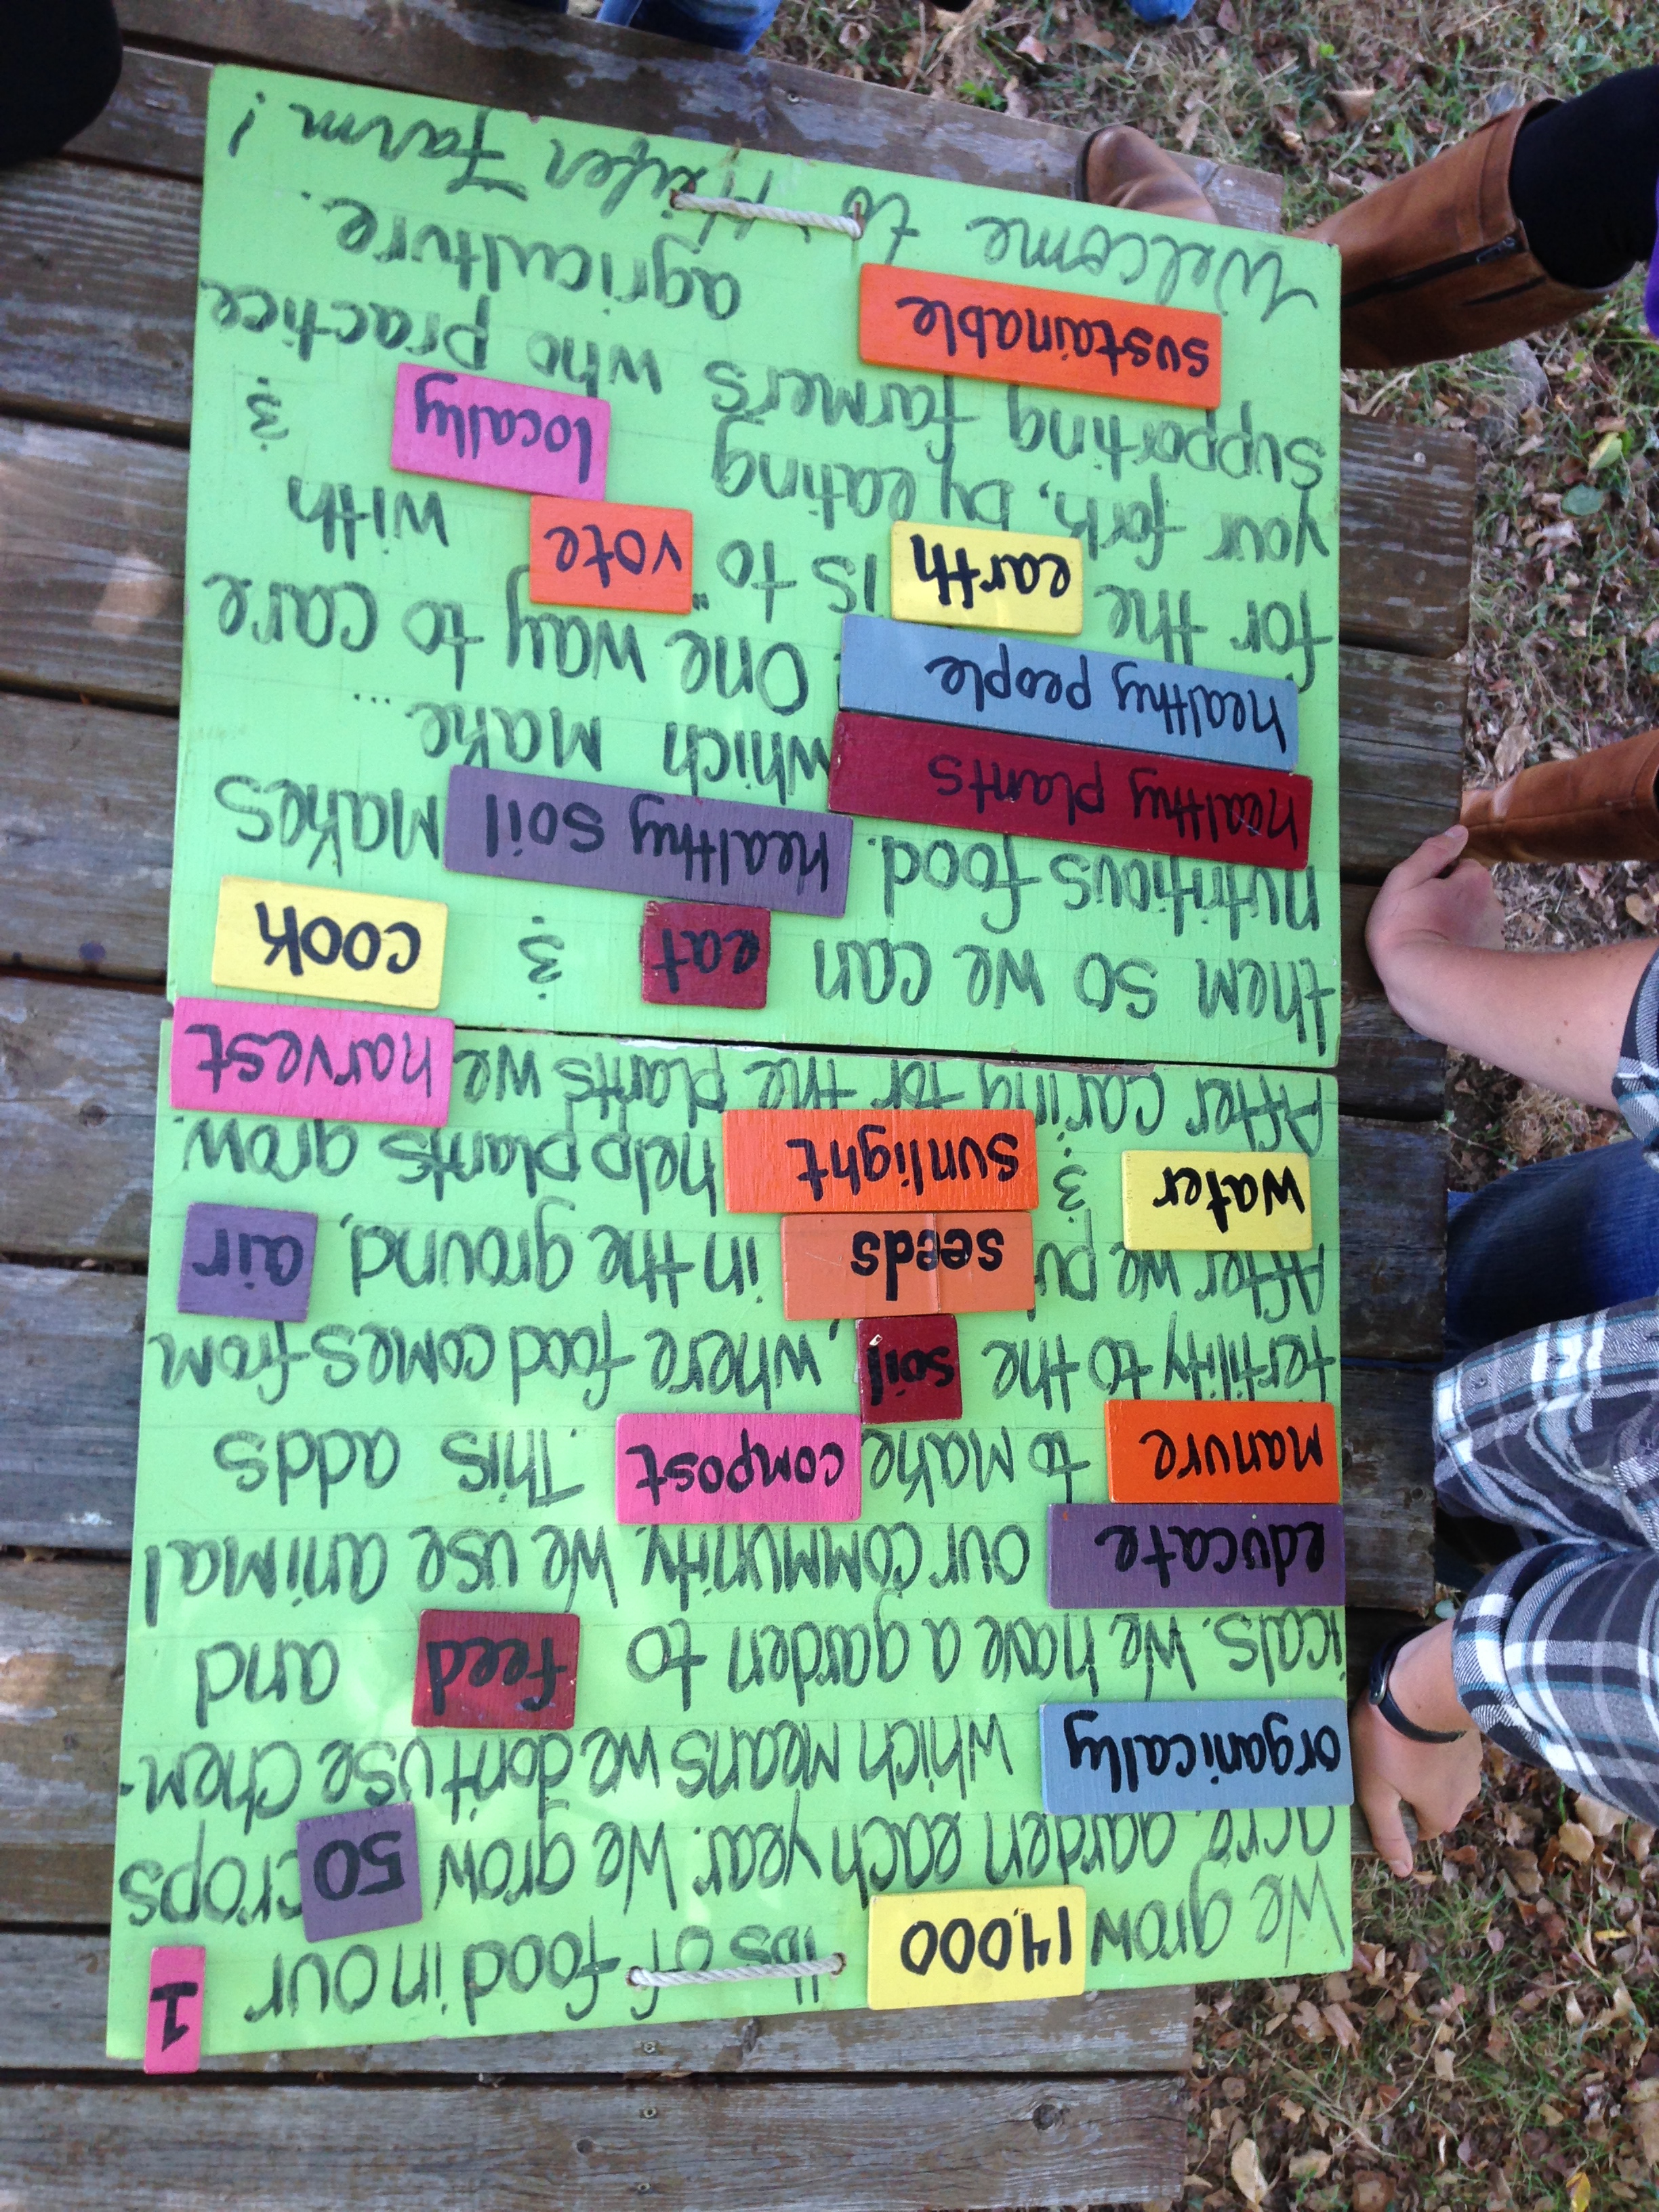 We grow 14,000 lbs of food in our 1
acre garden each year. We grow 50 crops
organically which means we don't use chem-
icals. We have a garden to feed and
educate our community. We use animal
manure to make compost. This adds
fertility to the soil, where food comes from.
After we put seeds in the ground, air
water & sunlight help plants grow.
After caring for the plants we harvest
them so we can eat & cook
nutritious food. healthy soil makes
healthy plants which make ...
healthy people. One way to care
for the earth is to "vote with
your fork", by eating locally &
supporting farmers who practice
sustainable agriculture.
Welcome to Heifer Farm!